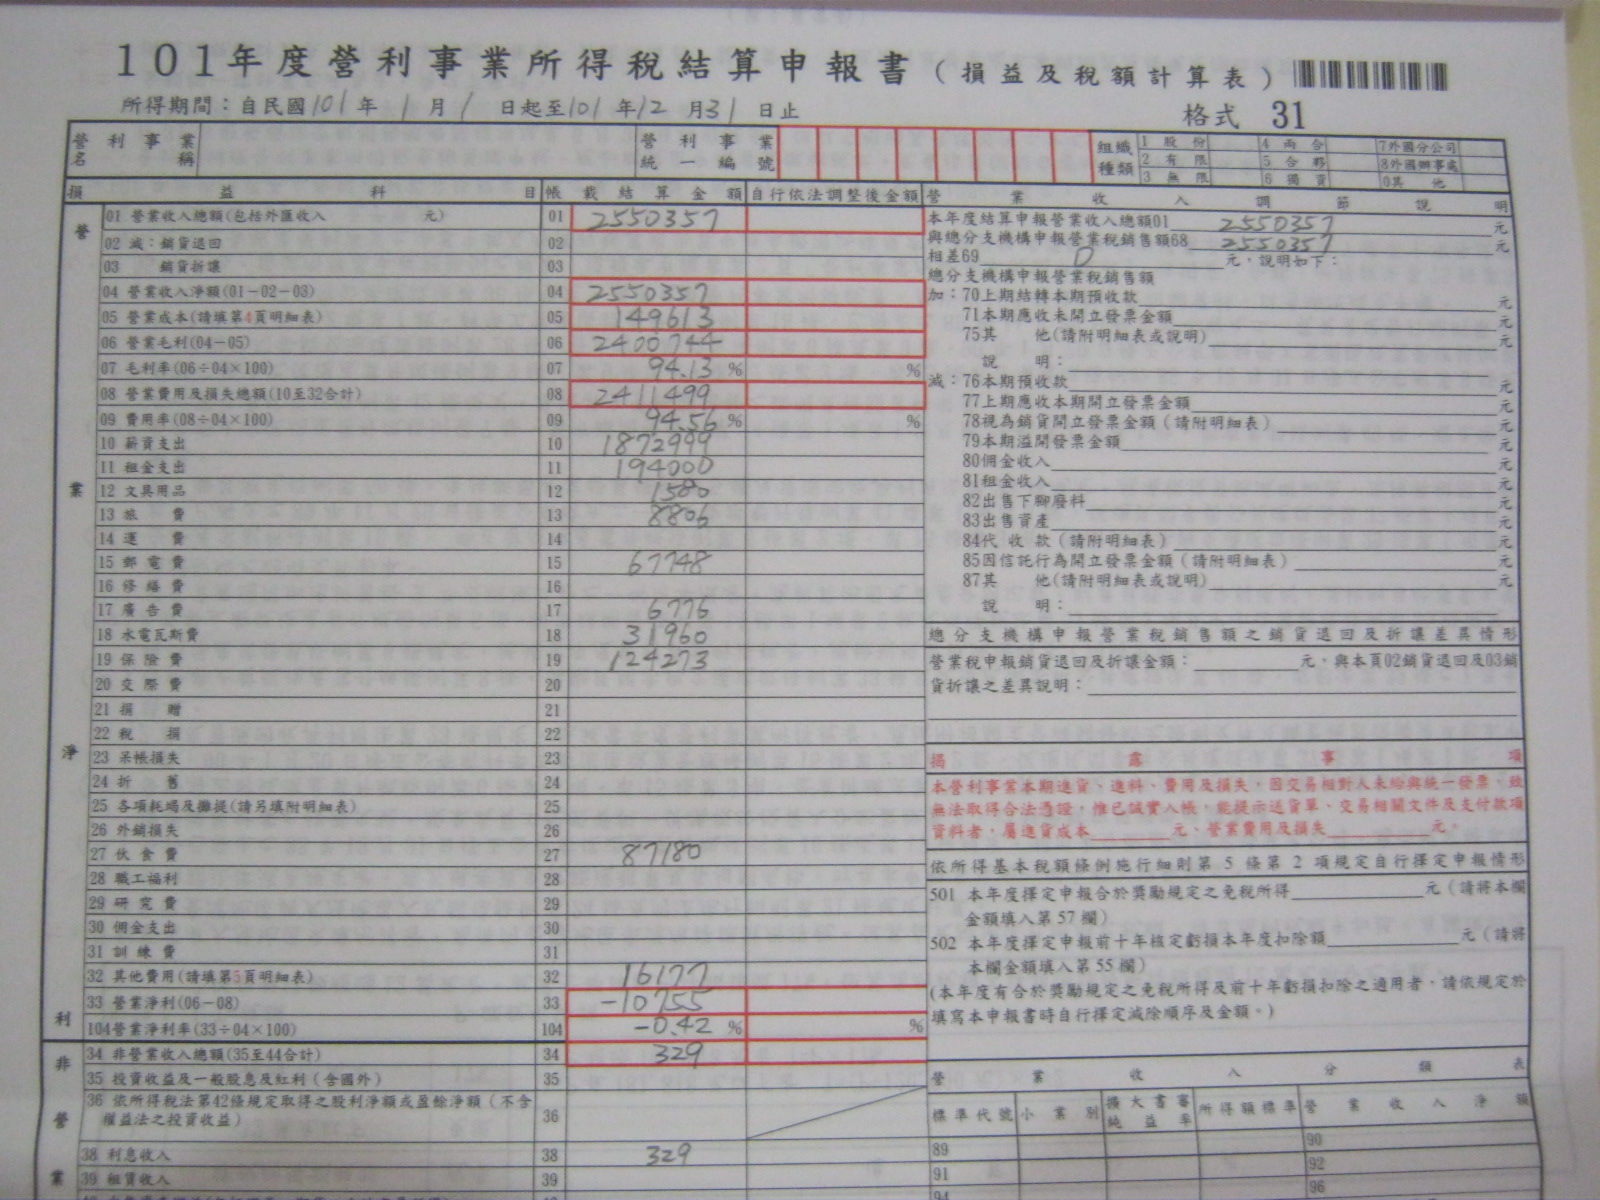 101年度營利事業所得稅結算申報書(損益及稅額計算表)
所得期間：自民國101年1月1日起至101年12月31日止
格式 31
營利事業名稱
營利事業統一編號
組織種類
1股份 4兩合 7外國分公司
2有限 5合夥 8外國辦事處
3無限 6獨資 0其他
損益科目 帳載結算金額 自行依法調整後金額
營業淨利
01 營業收入總額(包括外匯收入 元) 01 2550357
02 減：銷貨退回 02
03 銷貨折讓 03
04 營業收入淨額(01-02-03) 04 2550357
05 營業成本(請填第4頁明細表) 05 149613
06 營業毛利(04-05) 06 2400744
07 毛利率(06÷04×100) 07 94.13 % %
08 營業費用及損失總額(10至32合計) 08 2411499
09 費用率(08÷04×100) 09 94.56 % %
10 薪資支出 10 1872999
11 租金支出 11 194000
12 文具用品 12 1580
13 旅費 13 8806
14 運費 14
15 郵電費 15 67748
16 修繕費 16
17 廣告費 17 6776
18 水電瓦斯費 18 31960
19 保險費 19 124273
20 交際費 20
21 捐贈 21
22 稅捐 22
23 呆帳損失 23
24 折舊 24
25 各項耗竭及攤提(請另填附明細表) 25
26 外銷損失 26
27 伙食費 27 87180
28 職工福利 28
29 研究費 29
30 佣金支出 30
31 訓練費 31
32 其他費用(請填第5頁明細表) 32 16177
33 營業淨利(06-08) 33 -10755
104 營業淨利率(33÷04×100) 104 -0.42 % %
非營業
34 非營業收入總額(35至44合計) 34 329
35 投資收益及一般股息及紅利(含國外) 35
36 依所得稅法第42條規定取得之股利淨額或盈餘淨額(不含
權益法之投資收益) 36
38 利息收入 38 329
39 租賃收入 39
營業收入調節說明
本年度結算申報營業收入總額01 2550357 元
與總分支機構申報營業稅銷售額68 2550357 元
相差69 0 元，說明如下：
總分支機構申報營業稅銷售額
加：70上期結轉本期預收款 元
71本期應收未開立發票金額 元
75其他(請附明細表或說明) 元
說明：
減：76本期預收款 元
77上期應收本期開立發票金額 元
78視為銷貨開立發票金額(請附明細表) 元
79本期溢開發票金額 元
80佣金收入 元
81租金收入 元
82出售下腳廢料 元
83出售資產 元
84代收款(請附明細表) 元
85因信託行為開立發票金額(請附明細表) 元
87其他(請附明細表或說明) 元
說明：
總分支機構申報營業稅銷售額之銷貨退回及折讓差異情形
營業稅申報銷貨退回及折讓金額： 元，與本頁02銷貨退回及03銷
貨折讓之差異說明：
揭露事項
本營利事業本期進貨、進料、費用及損失，因交易相對人未給與統一發票，致
無法取得合法憑證，惟已誠實入帳，能提示送貨單、交易相關文件及支付款項
資料者，屬進貨成本 元、營業費用及損失 元。
依所得基本稅額條例施行細則第5條第2項規定自行擇定申報情形
501 本年度擇定申報合於獎勵規定之免稅所得 元(請將本欄
金額填入第57欄)
502 本年度擇定申報前十年核定虧損本年度扣除額 元(請將
本欄金額填入第55欄)
(本年度有合於獎勵規定之免稅所得及前十年虧損扣除之適用者，請依規定於
填寫本申報書時自行擇定減除順序及金額。)
營業收入分類表
標準代號 小業別 擴大書審純益率 所得額標準 營業收入淨額
89 90
91 92
94 96